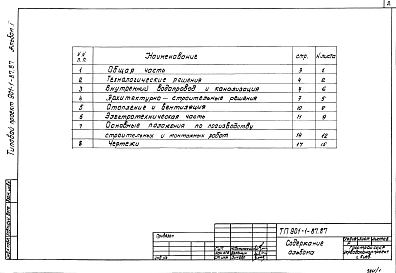 2
Типовой проект 901-1-87.87 Альбом I
№№ п.п. Наименование стр. №листа
1 Общая часть 3 1
2 Технологические решения 4 2
3 Внутренний водопровод и канализация 7 5
4 Архитектурно-строительные решения 7 5
5 Отопление и вентиляция 10 8
6 Электротехническая часть 11 9
7 Основные положения по производству
строительных и монтажных работ 14 12
8 Чертежи 17 15
Привязан
инв.№
ТП 901-1-87.87
Содержание
альбома